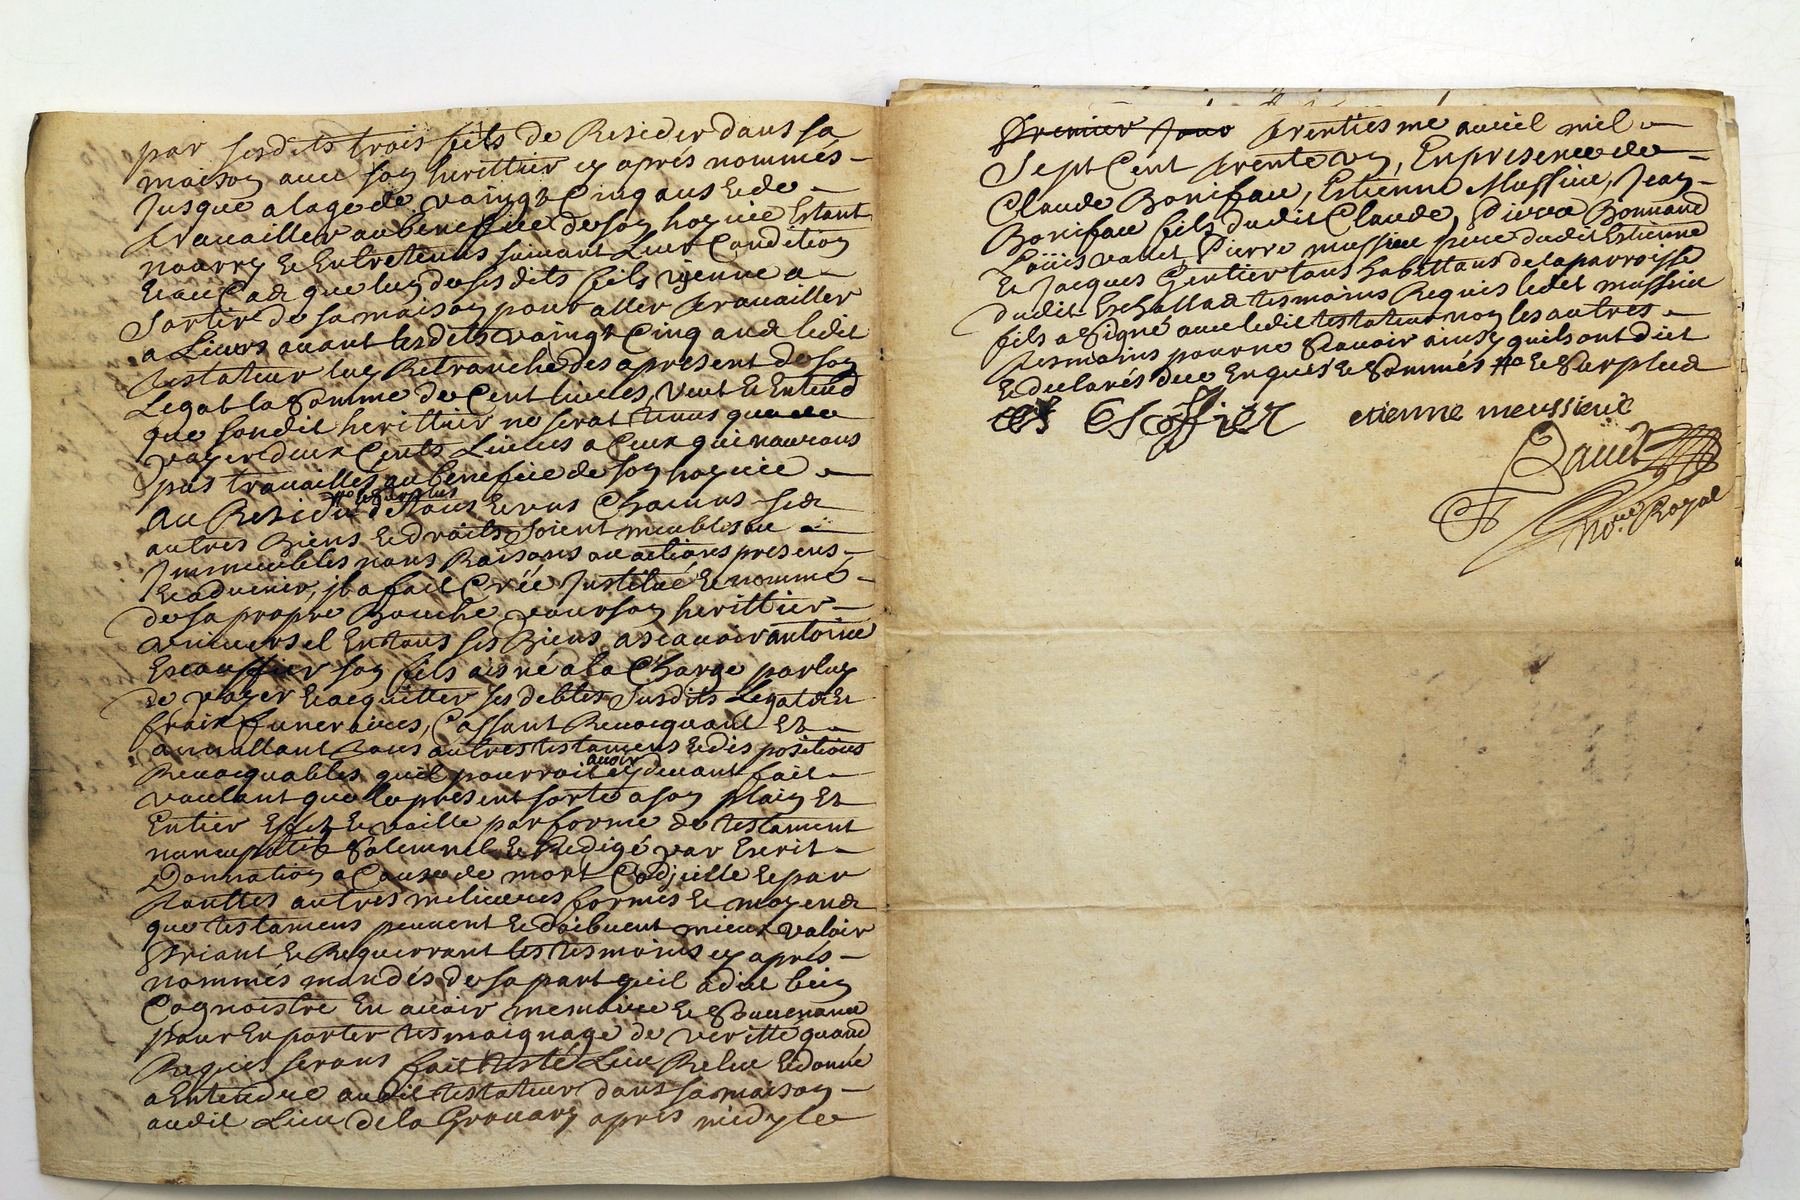 par sesdits trois fils de Resider dans sa
maison avec son herittier cy aprés nommés
Jusque a lage de vaingt Cinq ans et de
travailler au benefice de son hoyrie Estant
nourry et Entretenus suivant Leur Condition
et au Cas que luy de sesdits fils vienne a
Sortir de sa maison pour aller travailler
a Lieurs avant lesdits vaingt Cinq ans ledit
testateur luy Retranche des apresent de son
Legat la Somme de Cent livres, veut et Entend
que sondit herittier ne serat tenus que de
payer deux Cents Livres a Ceux qui nauront
pas travailles au benefice de son hoyrie
Au Residu de tous et uns Chacuns ses
le surplus
autres Biens et droits soient meubles ou
Immeubles noms Raisons ou actions presens
et advenir, il a fait Créé Institué et nommé
de sa propre Bouche pour son herittier
universel En tous ses Biens ascavoir antoine
Escauffier son fils aisné a la Charge par luy
de payer et acquitter ses debtes susdits Legats Et
fraix funeraires, Cassant Revocquant Et
annullant tous autres testamens et dispositions
Revocquables quil pourroit avoir cy devant fait
voulant que le present sorte a son plain Et
Entier Effet et vaille par forme de testament
nuncupatif Solemnel et Redigé par Escrit
Donnation a Cause de mort Codicille et par
touttes autres melieures formes et moyens
que testamens peuvent et doibvent mieux valoir
Priant et Requerrant les tesmoins cy aprés
nommés mandés de sa part quil a dit bien
Cognoistre En avoir memoire et Souvenance
pour En porter tesmoignage de veritté quand
Requis serons fait testé Leu Releu et donné
a Entendre audit testateur dans sa maison
audit Lieu de la Gronary apres midy le
Premier Jour trentiesme avril mil
Sept Cent trente un, En presence de
Claude Boniface, Estienne Mussieu, Jean
Boniface fils dudit Claude, Pierre Bonnand
Louis vallet, Pierre mussieu pere dudit Estienne
Et Jacques Gentier tous habittans de la parroisse
dudit Eschallas tesmoins Requis ledit mussieu
fils a Signé avec ledit testateur non les autres
tesmoins pour ne Scavoir ainsy quils ont dit
Et declarés duement Enquis et Sommés et le Surplus
Escoffier etienne meussieu
No.re Royal